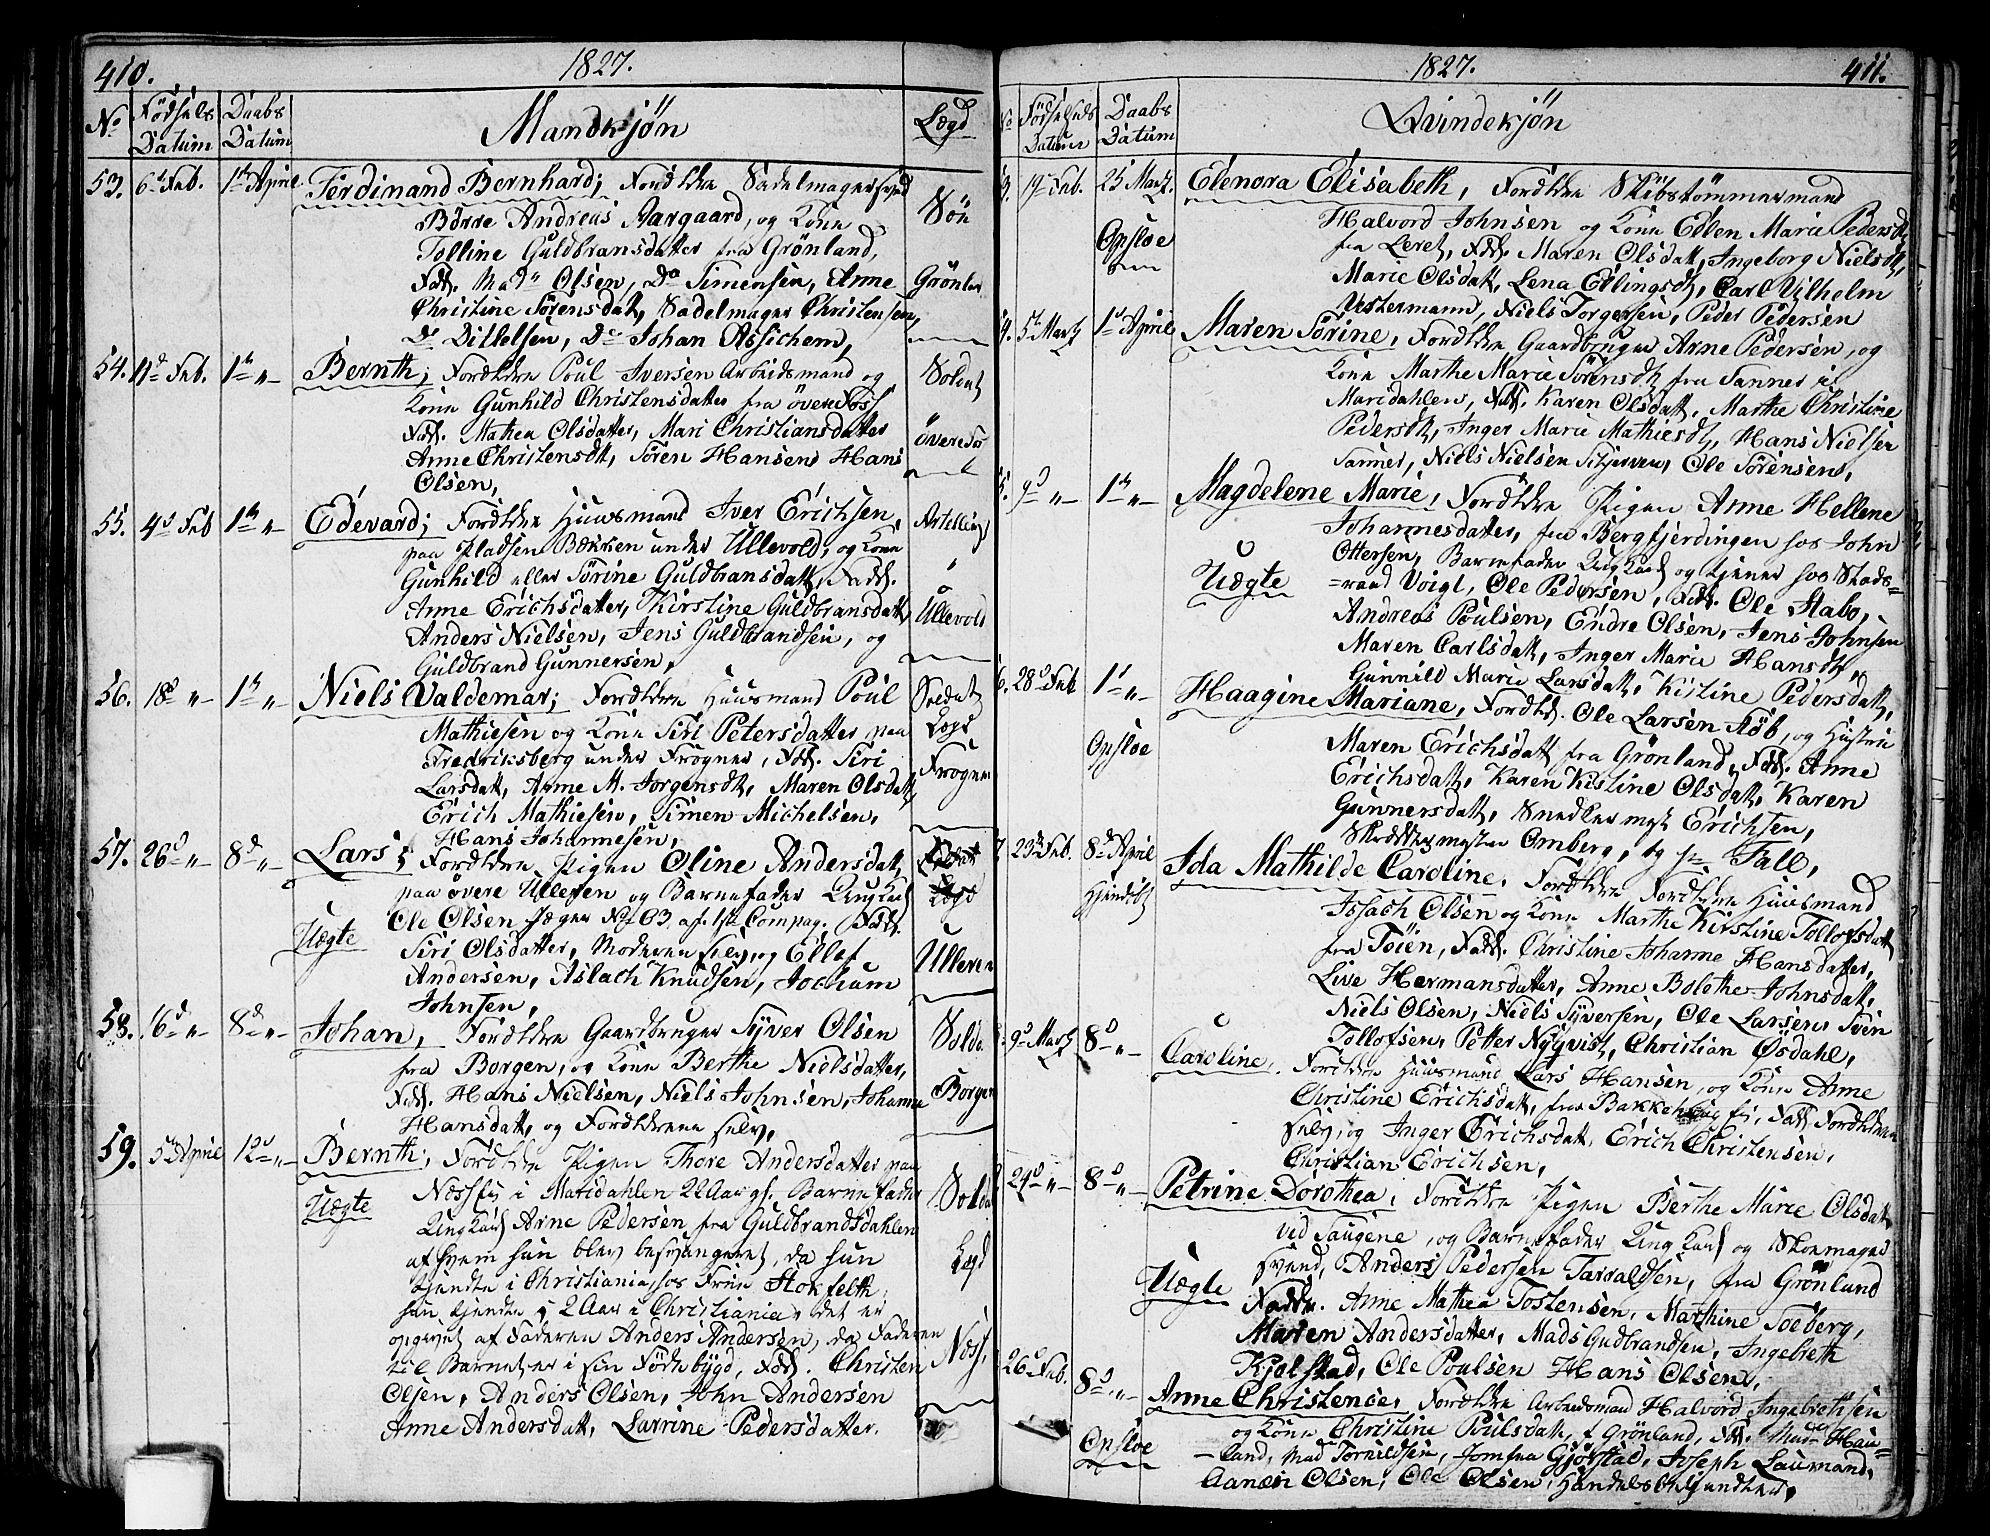 410.
1827.
No
Fødsels Datum
Daabs Datum
Mandkjön
Lægd
53. 6t Feb. 1st April Ferdinand Bernhard; Forældre Sadelmagersvend
Börre Andreas Aargaard, og Kone Sön
Tolline Guldbransdatter fra Grönland,
Fadd. Mad. Olsen, Do Simensen, Anne Grönland
Christine Sörensdatt, Sadelmager Christensen,
Do Ditlelsen, Do Johan Assichem,
54. 11t Feb. 1st "– Bernth; Forældre Poul Iversen Arbeidsmand og Soldat
Kone Gunhild Christensdatter fra övere Foss
Fadd. Mathea Olsdatter, Mari Christiansdatter övere Fos
Anne Christensdt, Sören Hansen, Hans
Olsen,
55. 4t Feb 1st "– Edevard; Forældre Huusmand Iver Erichsen,
paa Pladsen Bækken under Ullevold, og Kone
Gunhild eller Sörine Guldbransdatt, Fadd.
Anne Erichsdatter, Kirstine Guldbransdatt, Ullevold
Anders Nielsen, Jens Guldbrandsen, og
Guldbrand Gunnersen,
56. 18t "– 1st "– Niels Valdemar; Forældre Huusmand Poul Soldat
Mathiesen og Kone Siri Petersdatter paa Lægd
Fredriksberg under Frogner, Fadd. Siri Frogner
Larsdatt, Anne M. Jorgensdt, Maren Olsdatt,
Erich Mathiesen, Simen Michelsen,
Hans Johannesen,
57. 26t "– 8d "– Lars; Forældre Pigen Oline Andersdatt, Soldat
paa övere Ullern og Barnefader Ung Karl Lægd
Uægte Ole Olsen Jæger No 63 af 1ste Compag. Fadd.
Siri Olsdatter, Moderen selv, og Ellef Ullern
Andersen, Aslach Knudsen, Jochum
Johnsen,
58. 16t "– 8d "– Johan, Forældre Gaardbruger Syver Olsen
fra Borgen, og Kone Berthe Nielsdatter,
Fadd. Hans Nielsen, Niels Johnsen, Johanne Borgen
Hansdatt, og Forældrene selv,
59. 5te April 12t "– Bernth; Forældre Pigen Thore Andersdatter paa
Uægte Næssej i Maridahlen 22 Aar gl. Barnefader Soldat
Ung Karl Arne Pedersen fra Guldbrandsdahlen
af hvem hun blev besvangeret, da hun Lægd
tjendte i Christiania, hos Frue Stokfelth,
hun tjendte i 2 Aar i Christiania, det er
opgivet af Faderen Anders Andersen, da Faderen
til Barnet er i sin Födebygd, Fadd. Christen
Olsen, Anders Olsen, John Andersen
Anne Andersdatt, Larrine Pedersdatter.
1827.
411.
No
Fødsels Datum
Daabs Datum
Qvindekjön
3. 19 Feb. 25 Martz. Elenora Elisabeth, Forældre Skibstömmermand
Halvord Johnsen og Kone Edlen Marie Pedersdt,
Opsloe fra Leret, Fadd. Maren Olsdatt, Ingeborg Nielsdt,
Marie Olsdatt, Lena Edlingsdt, Carl Vilhelm
Vestermann, Niels Torgersen, Peder Pedersen
4. 5te Martz 1st April Maren Sörine, Forældre Gaardbruger Arne Pedersen, og
Kone Marthe Marie Sörensdt, fra Sanner i
Maridahlen, Fadd. Karen Olsdatt, Marthe Christine
Pedersdt, Inger Marie Mathiesdt, Hans Nielsen
Sanner, Niels Nielsen Skjerven, Ole Sörensen,
5. 9d "– 1st "– Magdelene Marie, Forældre Pigen Anne Hellene
Johannesdatter, fra Bergfjerdingen hos John
Ottersen, Barnefader Ung Karl og tjener hos Stads-
Uægte =raad Voigt, Ole Pedersen, Fadd. Ole Stabo,
Andreas Poulsen, Endre Olsen, Jens Johnsen
Maren Carlsdatt, Inger Marie Hansdt,
Gunnild Marie Larsdatt, Kistine Pedersdatt,
6. 28d Feb 1st "– Haagine Mariane, Forældr. Ole Larsen Töb, og Hustrue
Opsloe Maren Erichsdatt fra Grönland, Fadd. Anne
Erichsdatt, Karen Kistine Olsdatt, Karen
Gunnersdatt, Snedker myst Erichsen,
Skreddermester Omberg, og Hr Fall,
7. 23d Feb. 8d April Ida Mathilde Caroline, Forældre Huusmand
Issach Olsen og Kone Marthe Kirstine Tollofsdatt
fra Töien, Fadd. Christine Johanne Hansdatter,
Live Hermansdatter, Anne Bolethe Johnsdatt,
Niels Olsen, Niels Syversen, Ole Larsen, Svén
Tollofsen, Petter Nyqvist, Christian Øsdahl,
9d Martz 8d "– Caroline, Forældre Huusmand Lars Hansen, og Kone Anne
Christine Erichsdatt, fra Bakkehaugen, Fadd. Forældrene
selv, og Inger Erichsdatt, Erich Christensen,
Christian Erichsen,
24d "– 8d "– Petrine Dorothea, Forældre Pigen Berthe Marie Olsdatt
ved Saugene, og Barnefader Ung Karl og Skomager
Uægte svend, Anders Pedersen Tarvaldsen, fra Grönland
Fadde. Anne Mathea Tostensen, Marthine Toeberg,
Maren Andersdatter, Mads Gudbrandsen, Ingebreth
Kjelstad, Ole Poulsen Hans Olsen,
26d Feb. 8d "– Anne Christence, Forældre Arbeidsmand Halvord Ingebrethsen
og Kone Christine Poulsdatt, f Grönland, Fadd. Mad. Hau=
Opsloe –land, Mad Tornildsen, Jomfru Gjörstad, Joseph Laumand,
Aanæn Olsen, Ole Olsen, Handelsbetjendter,